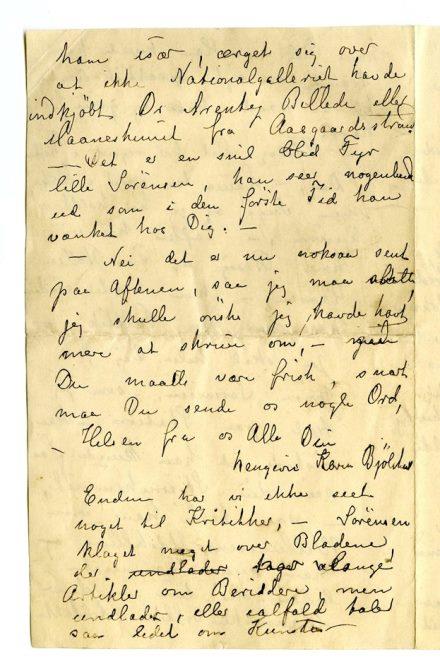 ham især, ærget sig over
at ikke Nationalgalleriet havde
indkjöbt Dr Arentz Billede eller
Maaneskinnet fra Aasgaardsstrand
— Det er en snil blid Fyr
lille Sørensen, han seer nogenlunde
ud som i den første Tid han
vanket hos Dig. —
— Nei det er nu noksaa sent
paa Aftenen, saa jeg maa slutte,
jeg skulle önske jeg havde havt
mere at skrive om, —
Du maatte være frisk, snart
maa Du sende os nogle Ord,
Hilsen fra os Alle Din
hengivne Karen Bjölstad
Endnu har vi ikke seet
noget til Kritikker, — Sörensen
klaget meget over Bladene,
der undlader tager lange
Artikler om Beriddere, men
undlader, eller ialfald taler
saa lidet om Kunster